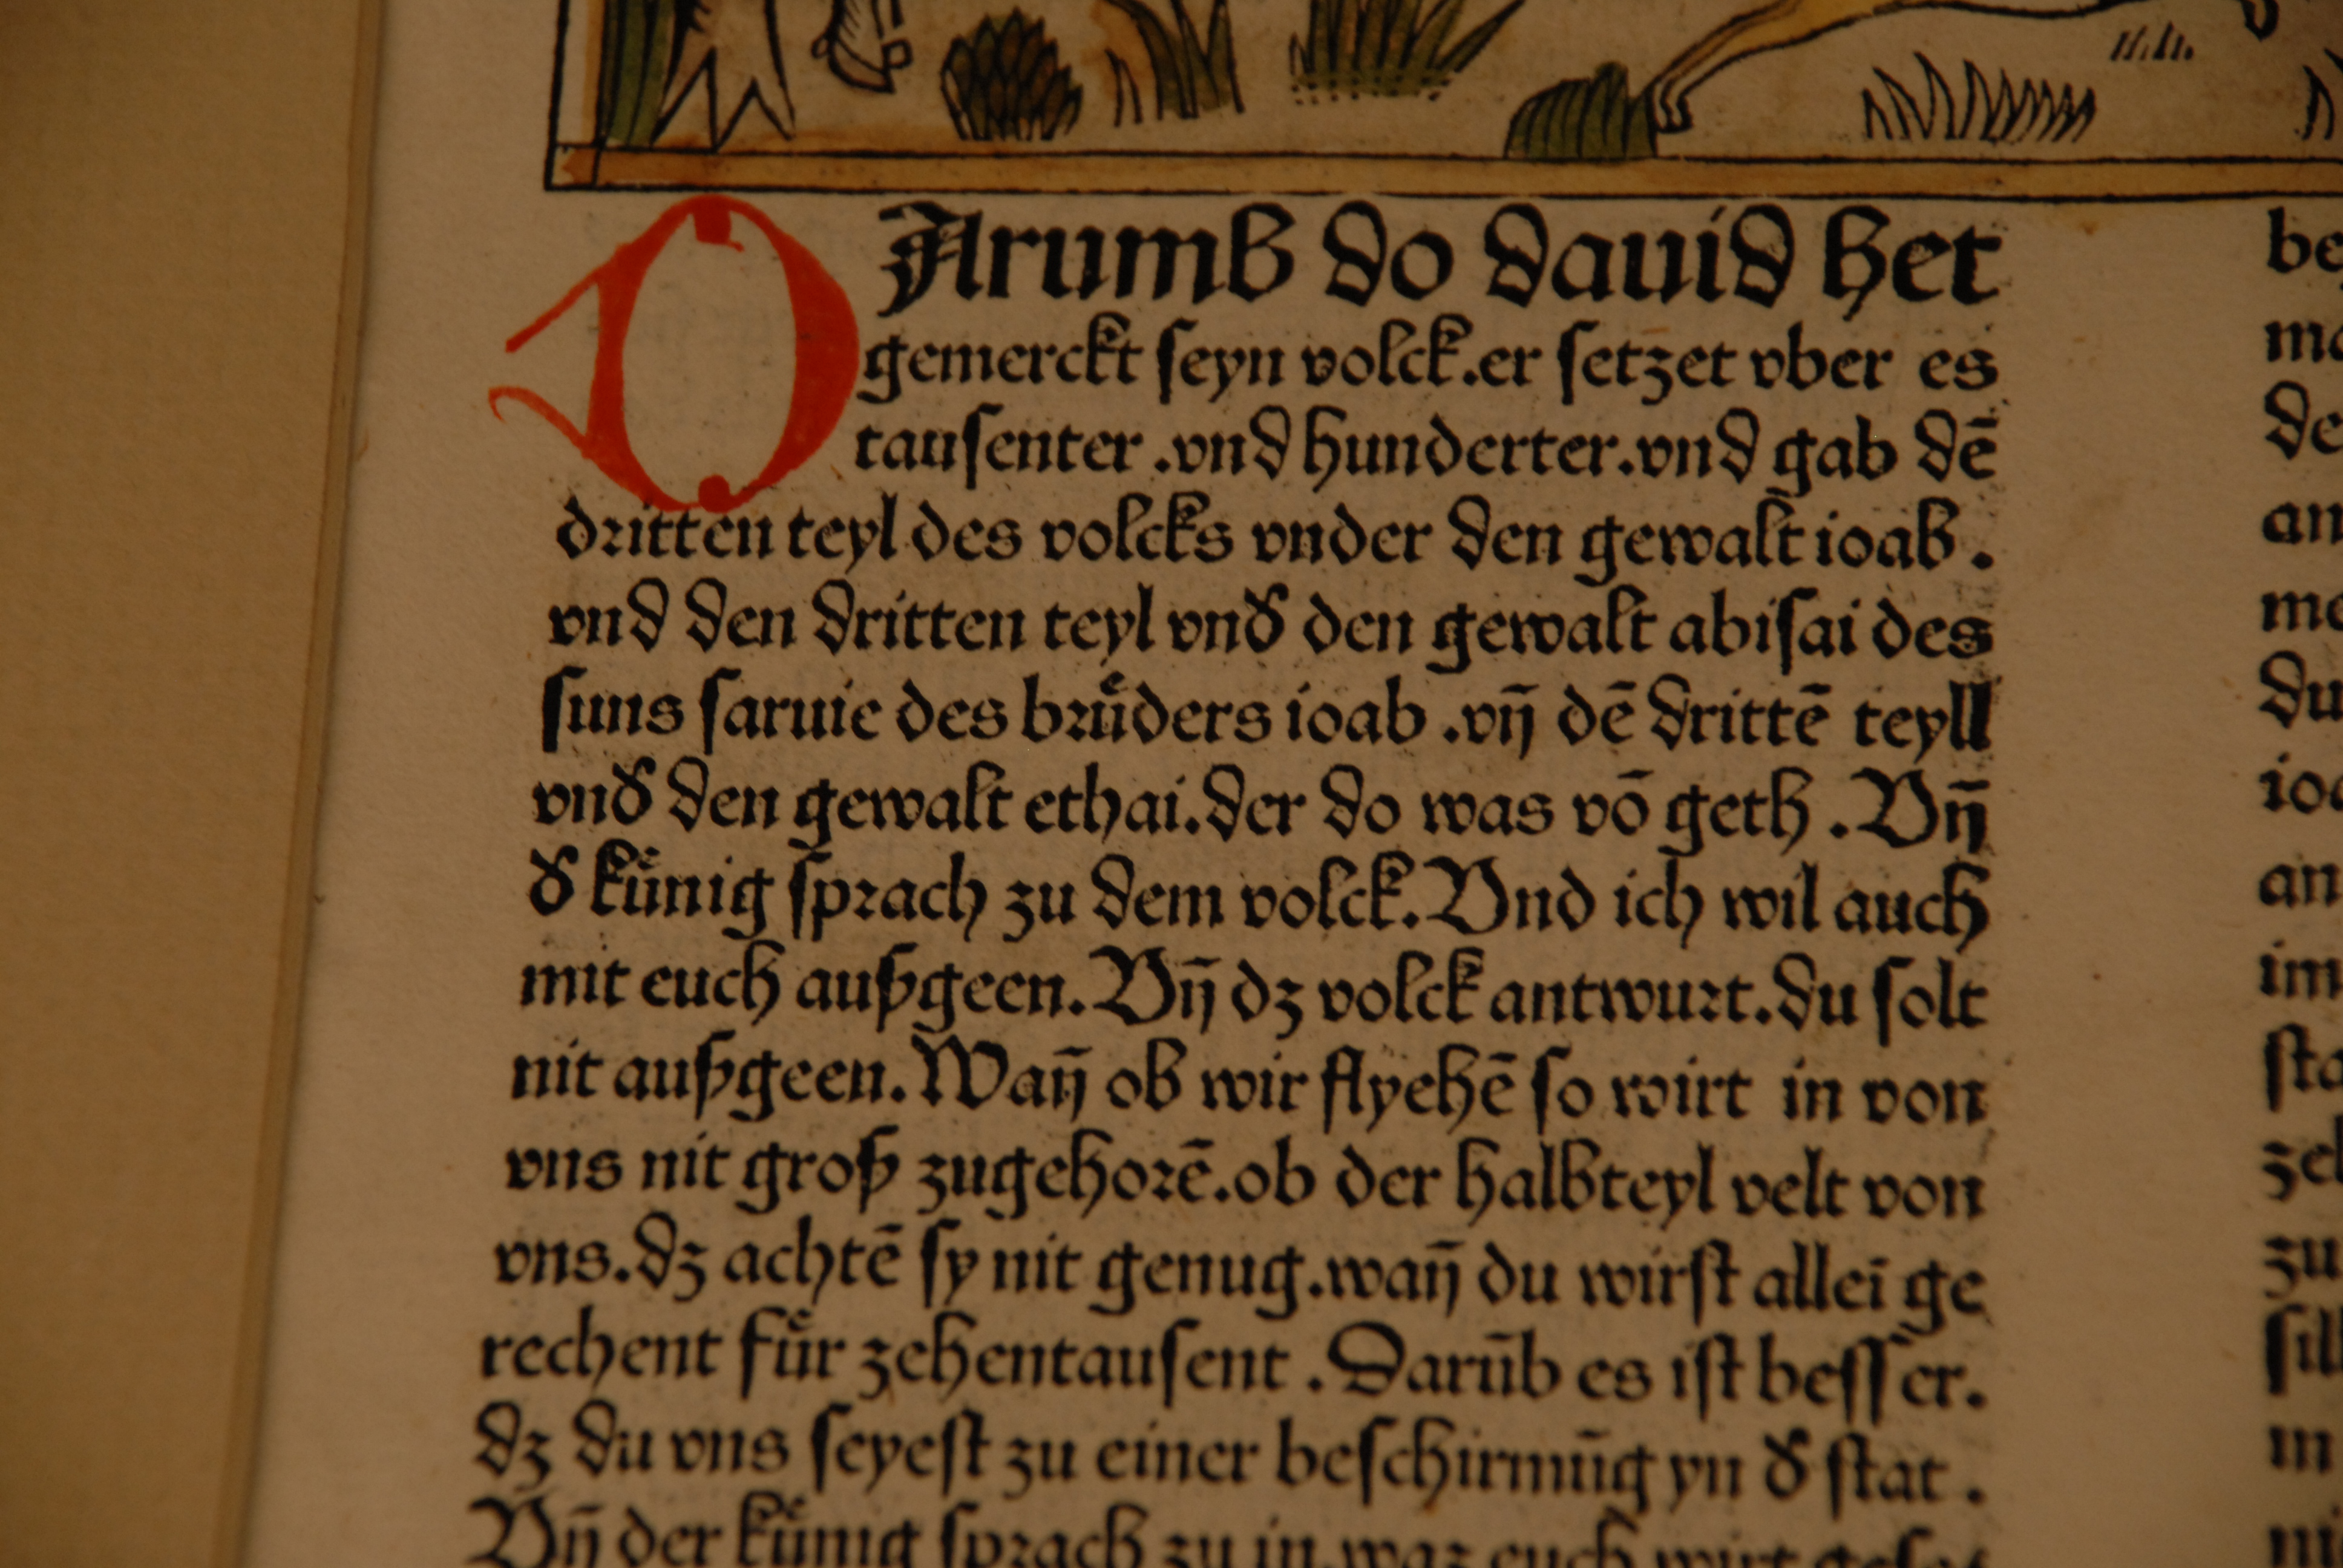 DArumb do dauid het
gemerckt ſeyn volck.er ſetzet vber es
tauſenter .vnd hunderter.vnd gab dē
dritten teyl des volcks vnder den gewalt ioab .
vnd den dritten teyl vnđ den gewalt abiſai des
ſuns ſaruie des brůders ioab .vn̄ dē drittē teyll
vnđ den gewalt ethai.der do was vō geth .Vn̄
đ kuͤnig ſprach zu dem volck.Vnd ich wil auch
mit euch außgeen.Vn̄ dz volck antwurt.du ſolt
nit außgeen.Wan̄ ob wir flyehē ſo wirt in von
vns nit groß zugehorē.ob der halbteyl velt von
vns.dz achtē ſy nit genug.wan̄ du wirſt alleī ge
rechent fuͤr zehentauſent .Darūb es iſt beſſer.
dz du vns ſeyeſt zu einer beſchirmūg yn đ ſtat .
Vn̄ der kuͤnig ſprach zu in.waz euch wirt
be
de
an
du
an
im
ſta
zu